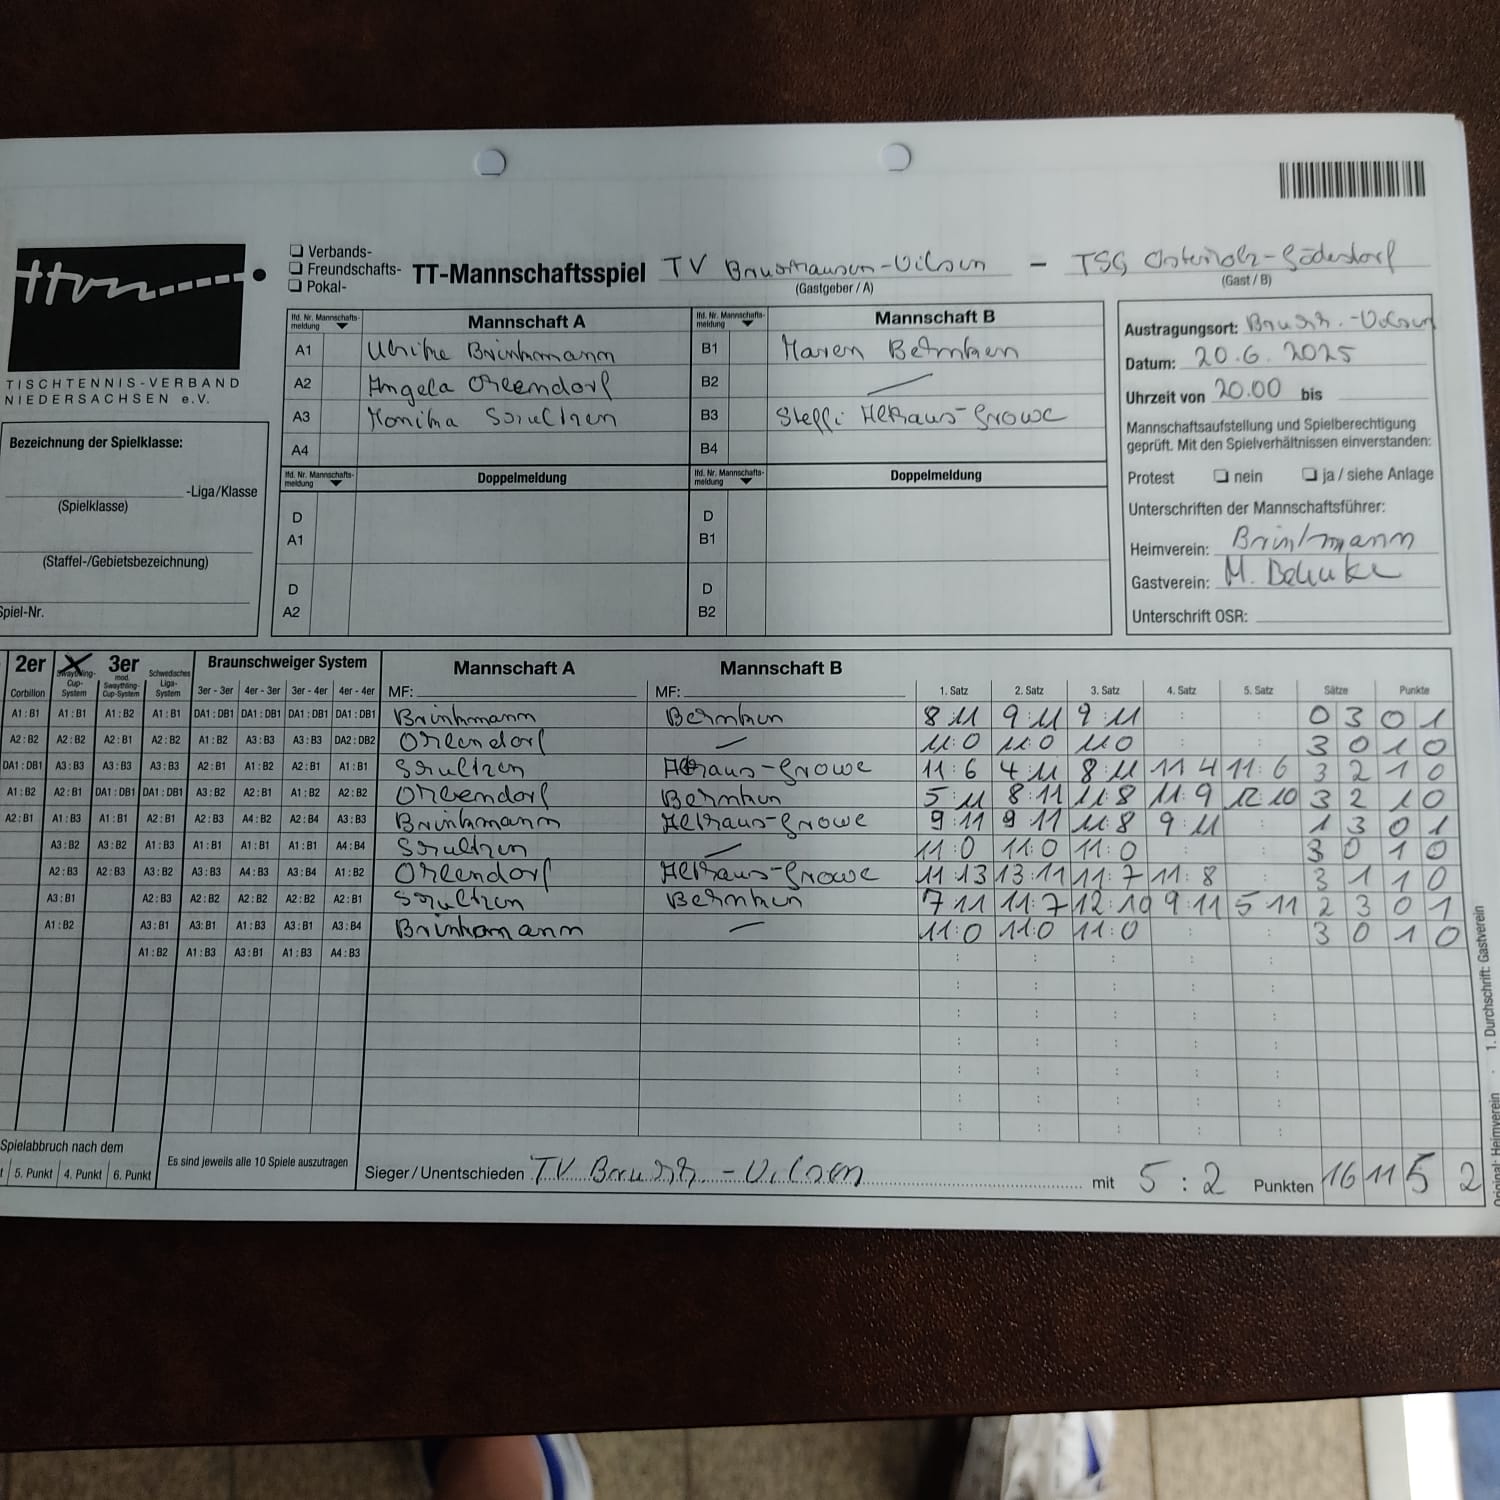 ❏ Verbands-
❏ Freundschafts-
❏ Pokal-
TT-Mannschaftsspiel TV Bruchhausen-Vilsen – TSG Osterholz-Gödestorf
(Gastgeber / A) (Gast / B)
ttvn
TISCHTENNIS-VERBAND
NIEDERSACHSEN e.V.
Bezeichnung der Spielklasse:
-Liga/Klasse
(Spielklasse)
(Staffel-/Gebietsbezeichnung)
Spiel-Nr.
lfd. Nr. Mannschafts-meldung Mannschaft A lfd. Nr. Mannschafts-meldung Mannschaft B
A1 Ulrike Brinkmann B1 Maren Behnken
A2 Angela Ohlendorf B2 —
A3 Monika Schultzen B3 Steffi Growe
A4 B4
lfd. Nr. Mannschafts-meldung Doppelmeldung lfd. Nr. Mannschafts-meldung Doppelmeldung
D A1 D B1
D A2 D B2
Austragungsort: Bruchh.-Vilsen
Datum: 20.6.2025
Uhrzeit von 20.00 bis
Mannschaftsaufstellung und Spielberechtigung
geprüft. Mit den Spielverhältnissen einverstanden:
Protest ❏ nein ❏ ja / siehe Anlage
Unterschriften der Mannschaftsführer:
Heimverein: Brinkmann
Gastverein: M.
Unterschrift OSR:
2er X 3er Braunschweiger System Mannschaft A Mannschaft B
Corbillon Swaythling-Cup-System mod. Swaythling-Cup-System Schwedisches Liga-System 3er - 3er 4er - 3er 3er - 4er 4er - 4er MF: MF: 1. Satz 2. Satz 3. Satz 4. Satz 5. Satz Sätze Punkte
A1 : B1 A1 : B1 A1 : B2 A1 : B1 DA1 : DB1 DA1 : DB1 DA1 : DB1 DA1 : DB1 Brinkmann Behnken 8:11 9:11 9:11 0 3 0 1
A2 : B2 A2 : B2 A2 : B1 A2 : B2 A1 : B2 A3 : B3 A3 : B3 DA2 : DB2 Ohlendorf — 11:0 11:0 11:0 3 0 1 0
DA1 : DB1 A3 : B3 A3 : B3 A3 : B3 A2 : B1 A1 : B2 A2 : B1 A1 : B1 Schultzen Growe 11:6 4:11 8:11 11:4 11:6 3 2 1 0
A1 : B2 A2 : B1 DA1 : DB1 DA1 : DB1 A3 : B2 A2 : B1 A1 : B2 A2 : B2 Ohlendorf Behnken 5:11 8:11 11:8 11:9 12:10 3 2 1 0
A2 : B1 A1 : B3 A1 : B1 A2 : B1 A2 : B3 A4 : B2 A2 : B4 A3 : B3 Brinkmann Growe 9:11 9:11 11:8 9:11 1 3 0 1
A3 : B2 A3 : B2 A1 : B3 A1 : B1 A1 : B1 A1 : B1 A4 : B4 Schultzen — 11:0 11:0 11:0 3 0 1 0
A2 : B3 A2 : B3 A3 : B2 A3 : B3 A4 : B3 A3 : B4 A1 : B2 Ohlendorf Growe 11:13 13:11 11:7 11:8 3 1 1 0
A3 : B1 A2 : B3 A2 : B2 A2 : B2 A2 : B2 A2 : B1 Schultzen Behnken 7:11 11:7 12:10 9:11 5:11 2 3 0 1
A1 : B2 A3 : B1 A3 : B1 A1 : B3 A3 : B1 A3 : B4 Brinkmann — 11:0 11:0 11:0 3 0 1 0
A1 : B2 A1 : B3 A3 : B1 A1 : B3 A4 : B3
Spielabbruch nach dem
5. Punkt 4. Punkt 6. Punkt
Es sind jeweils alle 10 Spiele auszutragen
Sieger / Unentschieden TV Bruchh.-Vilsen mit 5 : 2 Punkten 16 11 5 2
Original: Heimverein · 1. Durchschrift: Gastverein